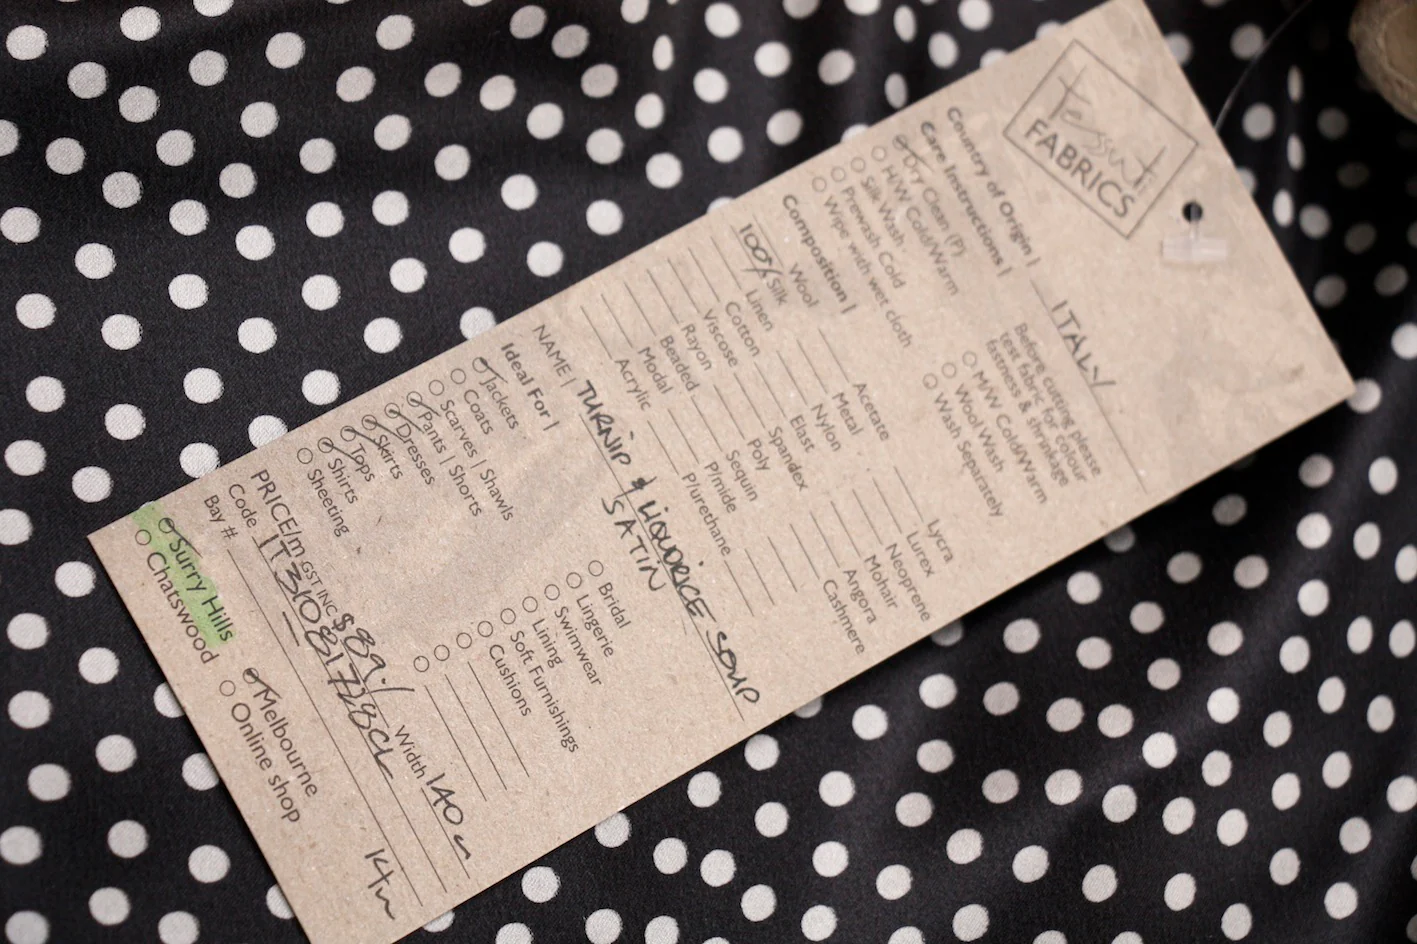 Tessuti
FABRICS
Country of Origin | ITALY
Care Instructions |
Dry Clean (P)
H/W Cold/Warm
Silk Wash
Prewash Cold
Wipe with wet cloth
Before cutting please
test fabric for colour
fastness & shrinkage
M/W Cold/Warm
Wool Wash
Wash Separately
Composition |
Wool
100% Silk
Linen
Cotton
Viscose
Rayon
Beaded
Modal
Acrylic
Acetate
Metal
Nylon
Elast
Spandex
Poly
Sequin
P/mide
P/urethane
Lycra
Lurex
Neoprene
Mohair
Angora
Cashmere
NAME | TURNIP & LIQUORICE SOUP
SATIN
Ideal For |
Jackets
Coats
Scarves | Shawls
Pants | Shorts
Dresses
Skirts
Tops
Shirts
Sheeting
Bridal
Lingerie
Swimwear
Lining
Soft Furnishings
Cushions
PRICE/m GST INC $89./ Width 140
Code
Bay #
Surry Hills
Chatswood
Melbourne
Online shop